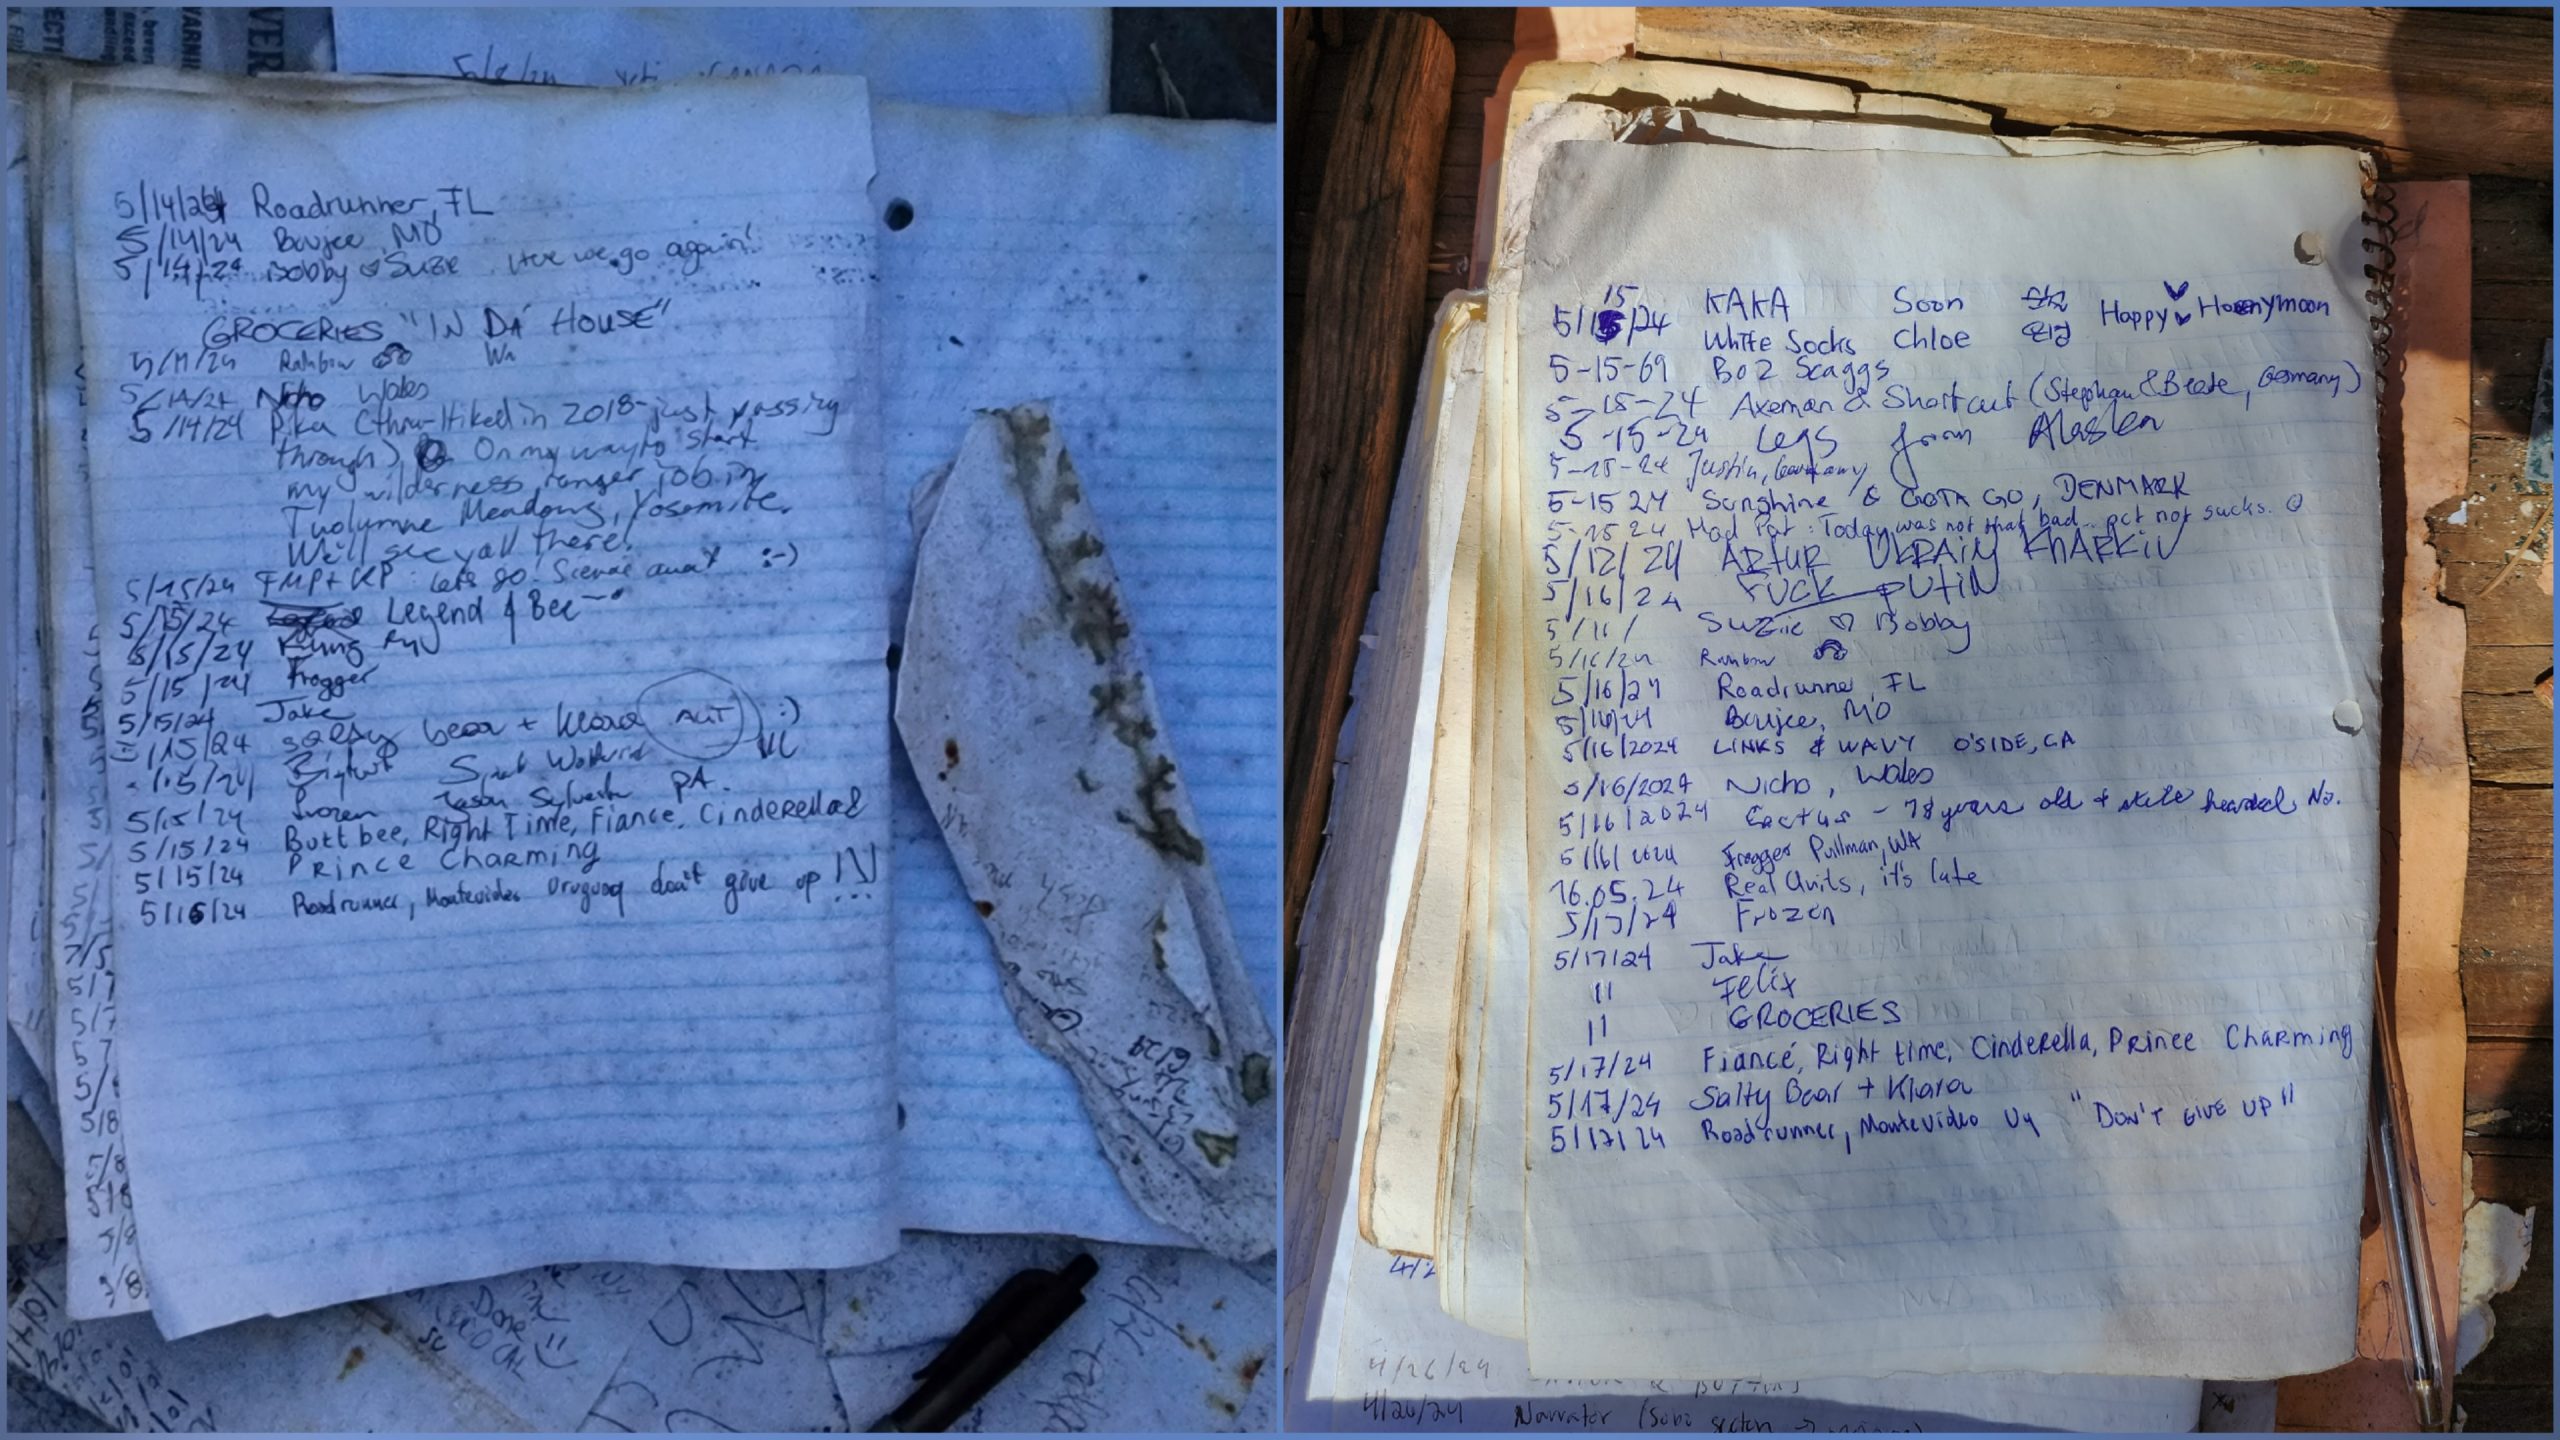 VER
WARNI
ECTI
5/8/24
5/14/24 Roadrunner, FL
5/14/24 Boujee, MO
5/14/24 Bobby ♡ Suzie Here we go again!
GROCERIES "IN DA' HOUSE"
5/14/24 Rainbow Wa
5/14/24 Nicho Wales
5/14/24 Pika (thru-Hiked in 2018-just passing
through) On my way to start
my wilderness ranger job in
Tuolumne Meadows, Yosemite.
We'll see yall there!
5/15/24 FMP + KP: Lets go! :-)
5/15/24 Legend & Bee
5/15/24 Kung Fu
5/15/24 Frogger
5/15/24 Jake
5/15/24 Salty bear + Klara AUT :)
5/15/24
5/15/24 Frozen Jason Sylvester PA.
5/15/24 Butt bee, Right Time, Fiance, Cinderella &
5/15/24 Prince Charming
5/16/24 Roadrunner, Montevideo Uruguay don't give up !!!
5/15/24 KAKA Soon Happy Honeymoon
White Socks Chloe
5-15-69 Boz Scaggs
5-15-24 Axeman & Shortcut (Stephan & Beate, Germany)
5-15-24 Legs from Alaska
5-15-24 Justin, Germany
5-15 24 Sunshine & GOTA GO, DENMARK
5-15 24 Mad Pat: Today was not that bad.. pct not sucks. ☺
5/12/24 ARTUR UKRAINY KHARKIV
5/16/24 FUCK PUTIN
5/16/ Suzie ♡ Bobby
5/16/24 Rainbow
5/16/24 Roadrunner, FL
5/16/24 Boujee, MO
5/16/2024 LINKS & WAVY O'SIDE, CA
5/16/2024 Nicho, Wales
5/16/2024 Cactus - 78 years old + still headed No.
5/16/2024 Frogger Pullman, WA
16.05.24 Real Units, it's late
5/17/24 Frozen
5/17/24 Jake
11 Felix
11 GROCERIES
5/17/24 Fiancé, Right time, Cinderella, Prince Charming
5/17/24 Salty Bear + Klara
5/17/24 Roadrunner, Montevideo Uy "DON'T GIVE UP"
4/26/24
4/26/24 Narrator